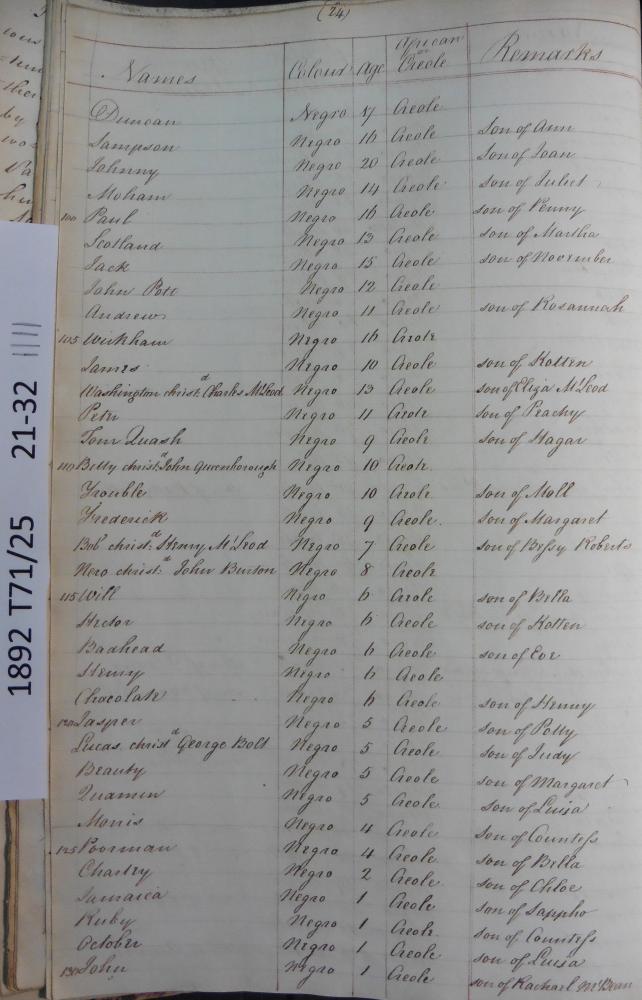 (24)
Names Colour Age African or Creole Remarks
Duncan Negro 17 Creole
Sampson Negro 16 Creole Son of Ann
Johnny Negro 20 Creole Son of Joan
Moham Negro 14 Creole son of Juliet
100 Paul Negro 16 Creole son of Penny
Scotland Negro 13 Creole son of Martha
Jack Negro 15 Creole son of November
John Pott Negro 12 Creole
Andrew Negro 11 Creole son of Rosannah
105 Wickham Negro 16 Creole
James Negro 10 Creole son of Kotten
Washington christ.d Charles McLeod Negro 13 Creole son of Eliza McLeod
Peter Negro 11 Creole son of Peachy
Tom Quash Negro 9 Creole son of Hagar
110 Betty christ.d John Queenborough Negro 10 Creole
Trouble Negro 10 Creole son of Moll
Frederick Negro 9 Creole. son of Margaret
Bob christ.d Henry McLeod Negro 7 Creole son of Bessy Roberts
Nero christ.d John Burton Negro 8 Creole
115 Will Negro 6 Creole son of Bella
Hector Negro 6 Creole son of Kotten
Badhead Negro 6 Creole son of Eve
Henry Negro 6 Creole
Chocolate Negro 6 Creole son of Henny
120 Jasper Negro 5 Creole son of Polly
Lucas christ.d George Bolt Negro 5 Creole son of Judy
Beauty Negro 5 Creole son of Margaret
Quamin Negro 5 Creole son of Luisa
Morris Negro 4 Creole son of Countess
125 Poorman Negro 4 Creole son of Bella
Charley Negro 2 Creole son of Chloe
Jamaica Negro 1 Creole son of Sappho
Ruby Negro 1 Creole son of Countess
October Negro 1 Creole son of Luisa
130 John Negro 1 Creole son of Rachael McBean
1892 T71/25 21-32